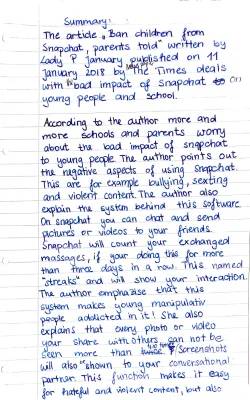 Summary:
The article „Ban children from
Snapchat, parents told" written by
Lady P January published on 11
January 2018 by The Times deals
with bad impact of Snapchat on
young people and school.
According to the author more and
more schools and parents worry
about the bad impact of snapchat
to young people. The author points out
the negative aspects of using snapchat.
This are for example bullying, sexting
and violent content. The author also
explain the system behind this software.
On snapchat you can chat and send
pictures or videos to your friends.
Snapchat will count your exchanged
massages, if your doing this for more
than three days in a row. This named
"streaks" and will show your interaction.
The author emphasise that this
system makes young manipulativ
people addicted in it! She also
explains that every photo or video
your share with others can not be
seen more than Screenshots
will also shown to your conversational
partner. This function makes it easy
for hateful and violent content, but also